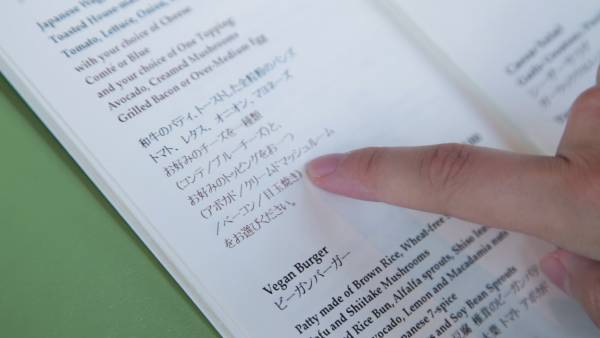 Japanese Wag
Toasted House-ma
Tomato, Lettuce, Onion,
with your choice of Cheese
Comté or Blue
and your choice of One Topping
Avocado, Creamed Mushrooms
Grilled Bacon or Over-Medium Egg
和牛のパティ、トーストした全粒粉のバンズ
トマト、レタス、オニオン、マヨネーズ
お好みのチーズを一種類
(コンテ/ブルーチーズ)と、
お好みのトッピングをお一つ
(アボカド/クリームドマッシュルーム
/ベーコン/目玉焼き)
をお選びください。
Vegan Burger
ビーガンバーガー
Patty made of Brown Rice, Wheat-free
fu and Shiitake Mushrooms
d Rice Bun, Alfalfa sprouts, Shiso lea
vocado, Lemon and Macadamia nut
apanese 7-spice
and Soy Bean Sprouts
椎茸のビーガンパテ
トマト アボカド
Caesar Salad